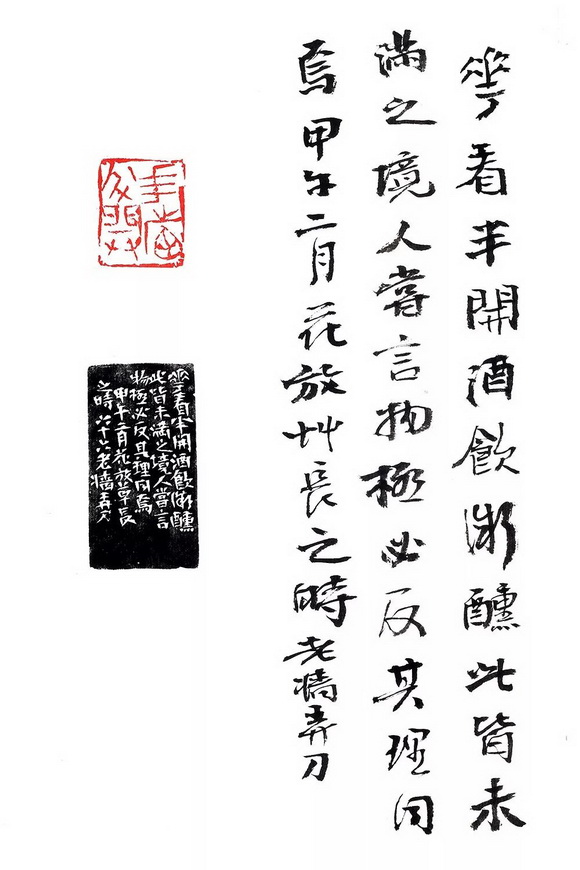 華看半開酒飲微醺此皆未
滿之境人嘗言物極必反其理同
焉甲午二月花放艸長之時老牆弄刀
華看半開酒飲微醺
此皆未滿之境人嘗言
物極必反其理同焉
甲午二月花放草長
之時六十六老牆弄刀